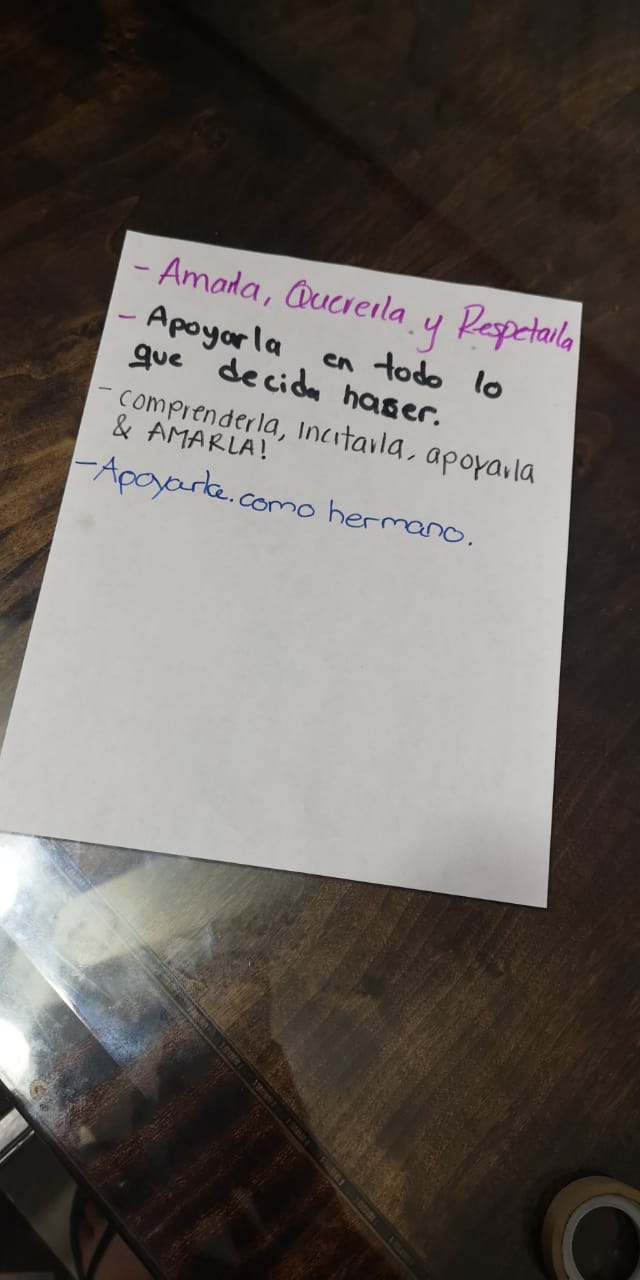 - Amarla, Quererla y Respetarla
- Apoyarla en todo lo
que decida haser.
- comprenderla, incitarla, apoyarla
& AMARLA!
- Apoyarla. como hermano.